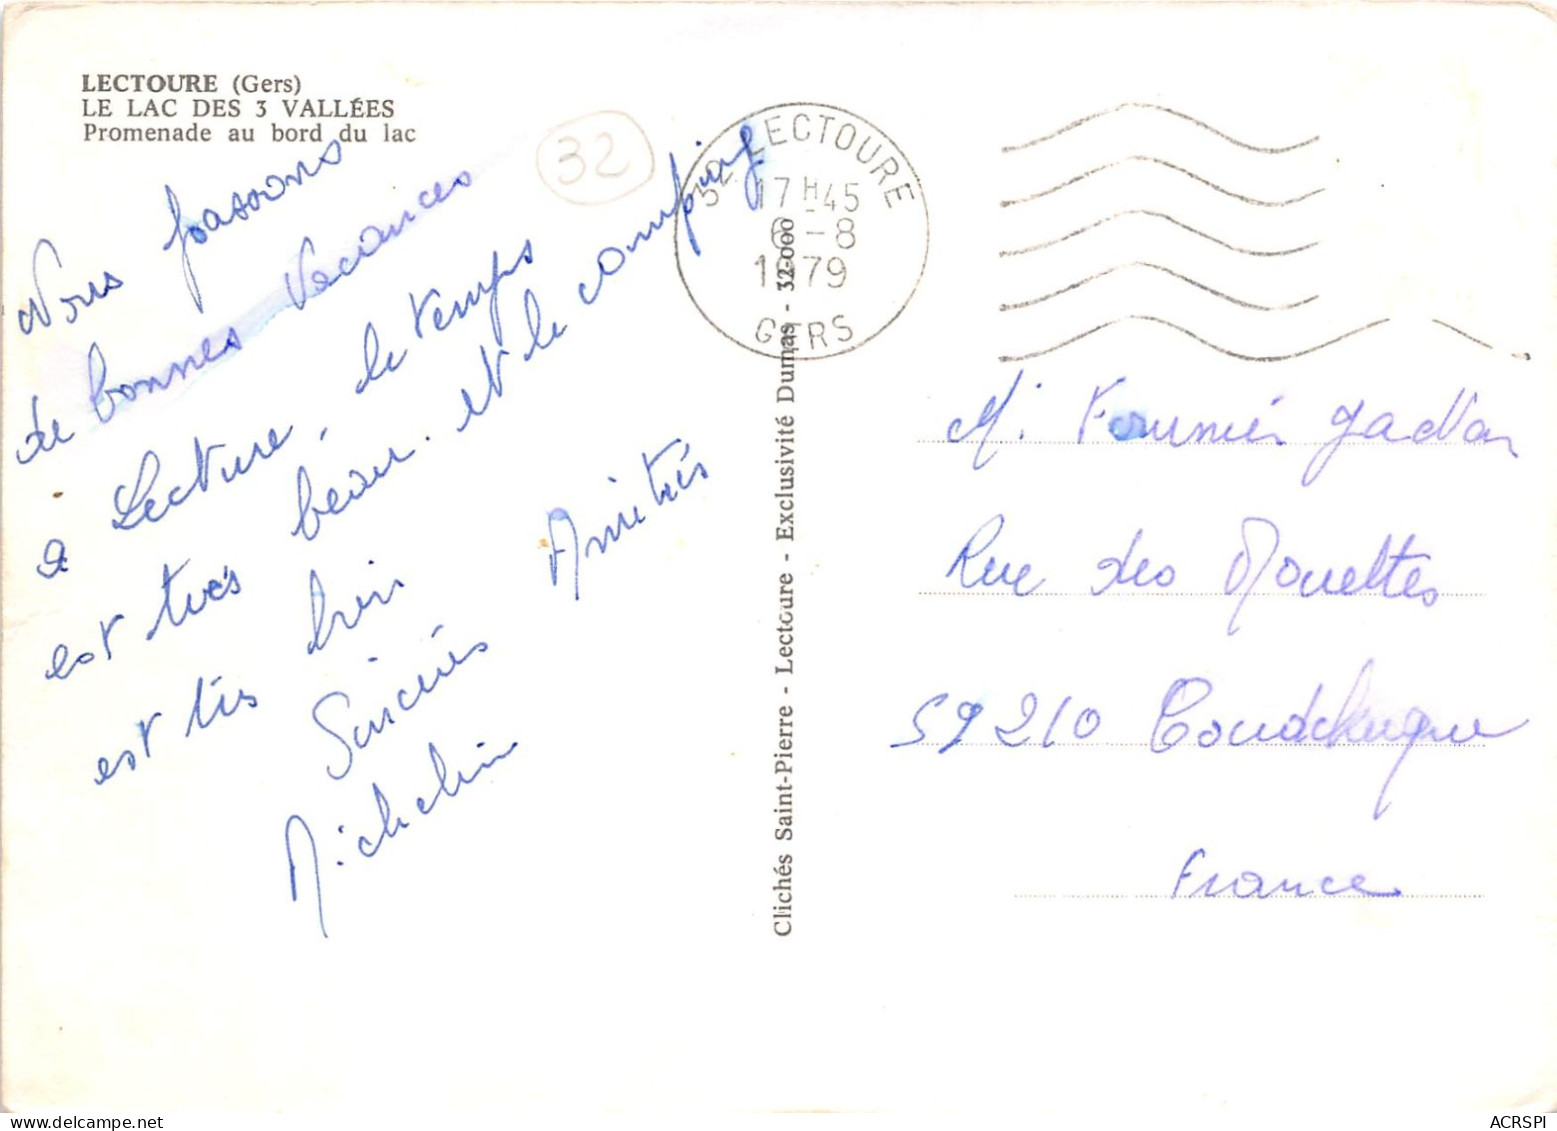 LECTOURE (Gers)
LE LAC DES 3 VALLÉES
Promenade au bord du lac
32
32 LECTOURE
17H45
6-8
1979
GERS
Nous passons
de bonnes vacances
a Lecture, le temps
est très beau. et le camping
est très bien
Sincères Amitiés
Michelin
Clichés Saint-Pierre - Lectoure - Exclusivité Dumas - 32-000
M. Fournier
Rue des Mouettes
59210 Coudekerque
France
ACRSPI